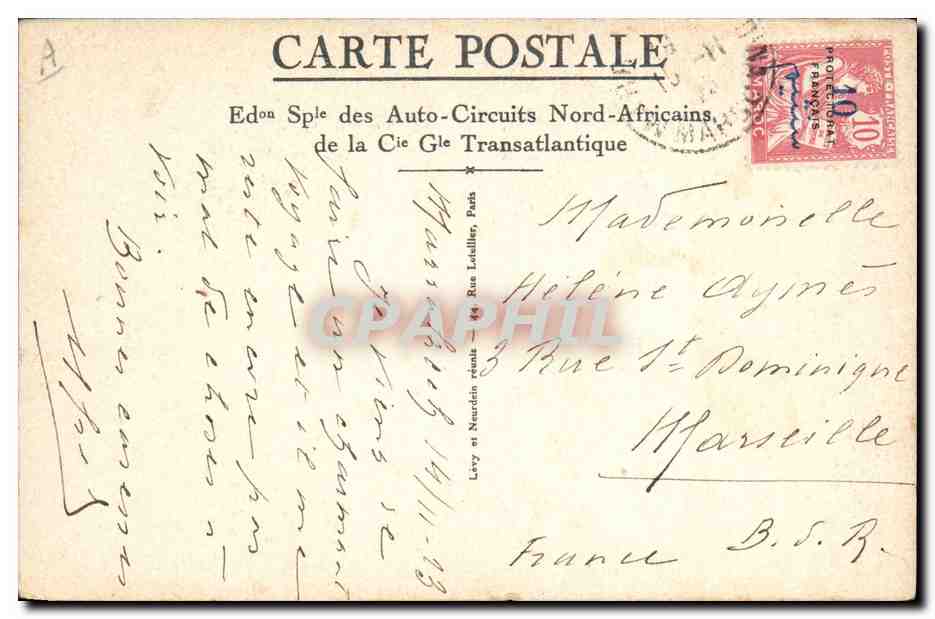 A
CARTE POSTALE
Edon Sple des Auto-Circuits Nord-Africains
de la Cie Gle Transatlantique
POSTE FRANÇAISE
MAROC
10
PROTECTORAT
FRANÇAIS
10
Marrakech 14/11-23
Je viens de
faire un charmant
voyage et il me
reste encore pas
mal de choses à
voir.
Bonnes caresses
Lévy et Neurdein réunis — 44 Rue Letellier, Paris
Mademoiselle
Hélène Aymès
3 Rue St Dominique
Marseille
France B. d. R.
CPAPHIL